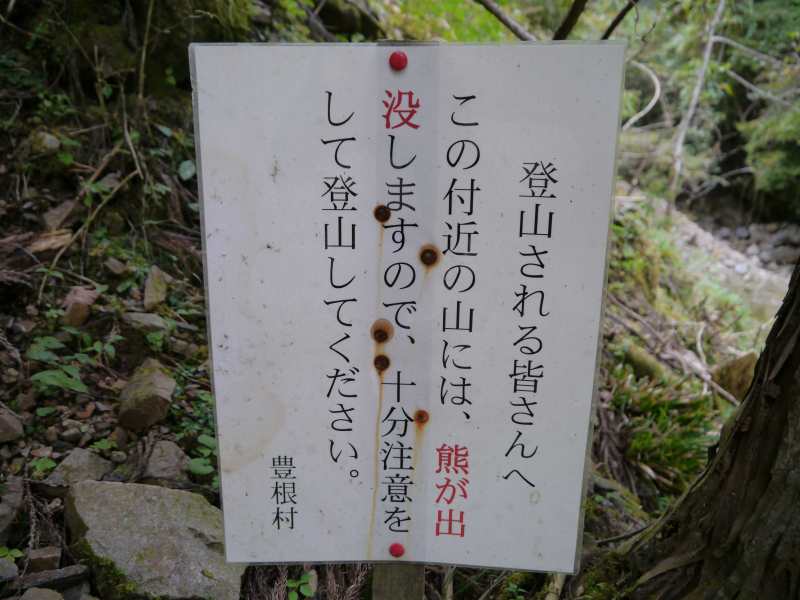 登山される皆さんへ
この付近の山には、熊が出
没しますので、十分注意を
して登山してください。
豊根村